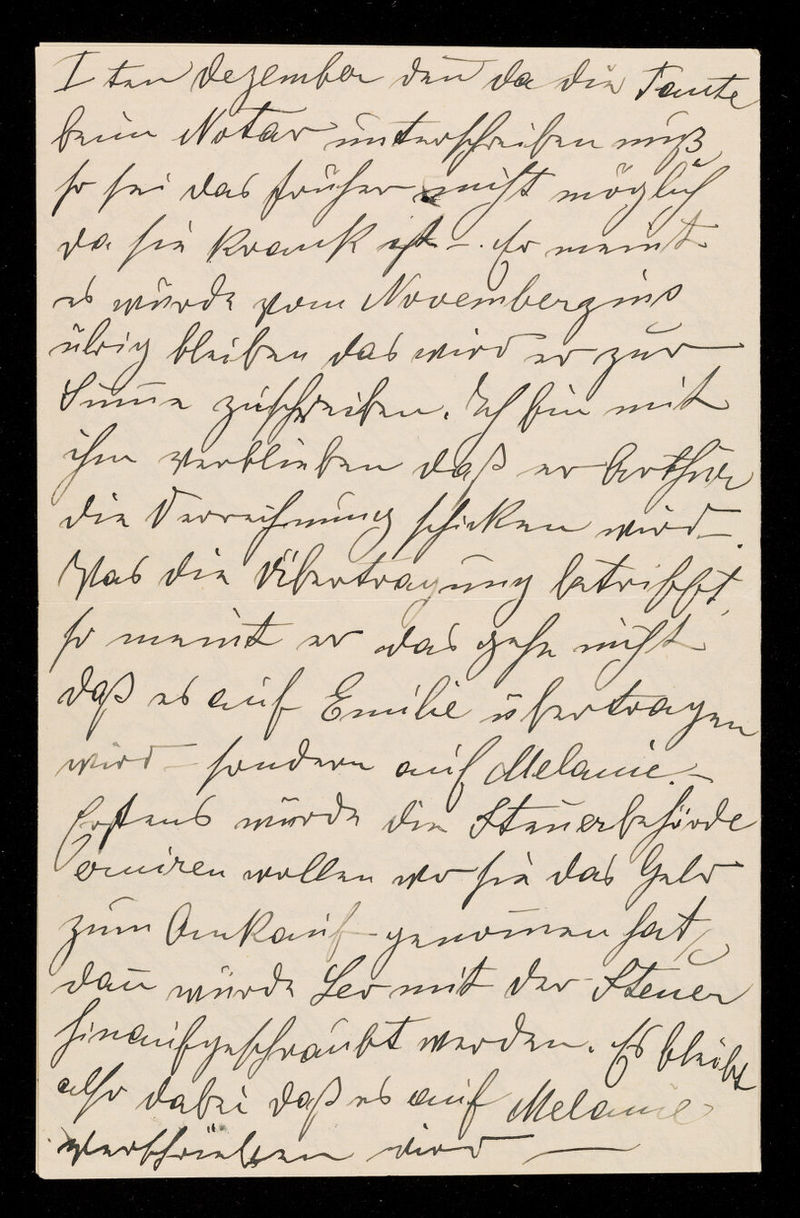 I ten Dezember denn da die Tante
beim Notar unterschreiben muß
so sei das früher nicht möglich
da sie krank ist –. Er meint
es würde vom Novemberzins
übrig bleiben das wird er zur
Summe zuschreiben. Ich bin mit
ihm verblieben daß er Arthur
die Verrechnung schicken wird –.
Was die Übertragung betrifft,
so meint er das gehe nicht
daß es auf Emilie übertragen
wird – sondern auf Melanie. –
Erstens würde die Steuerbehörde
eruiren wollen wo sie das Geld
zum Ankauf genommen hat,
dann würde Leo mit der Steuer
hinaufgeschraubt werden. Es bleibt
also dabei daß es auf Melanie
verschrieben wird —